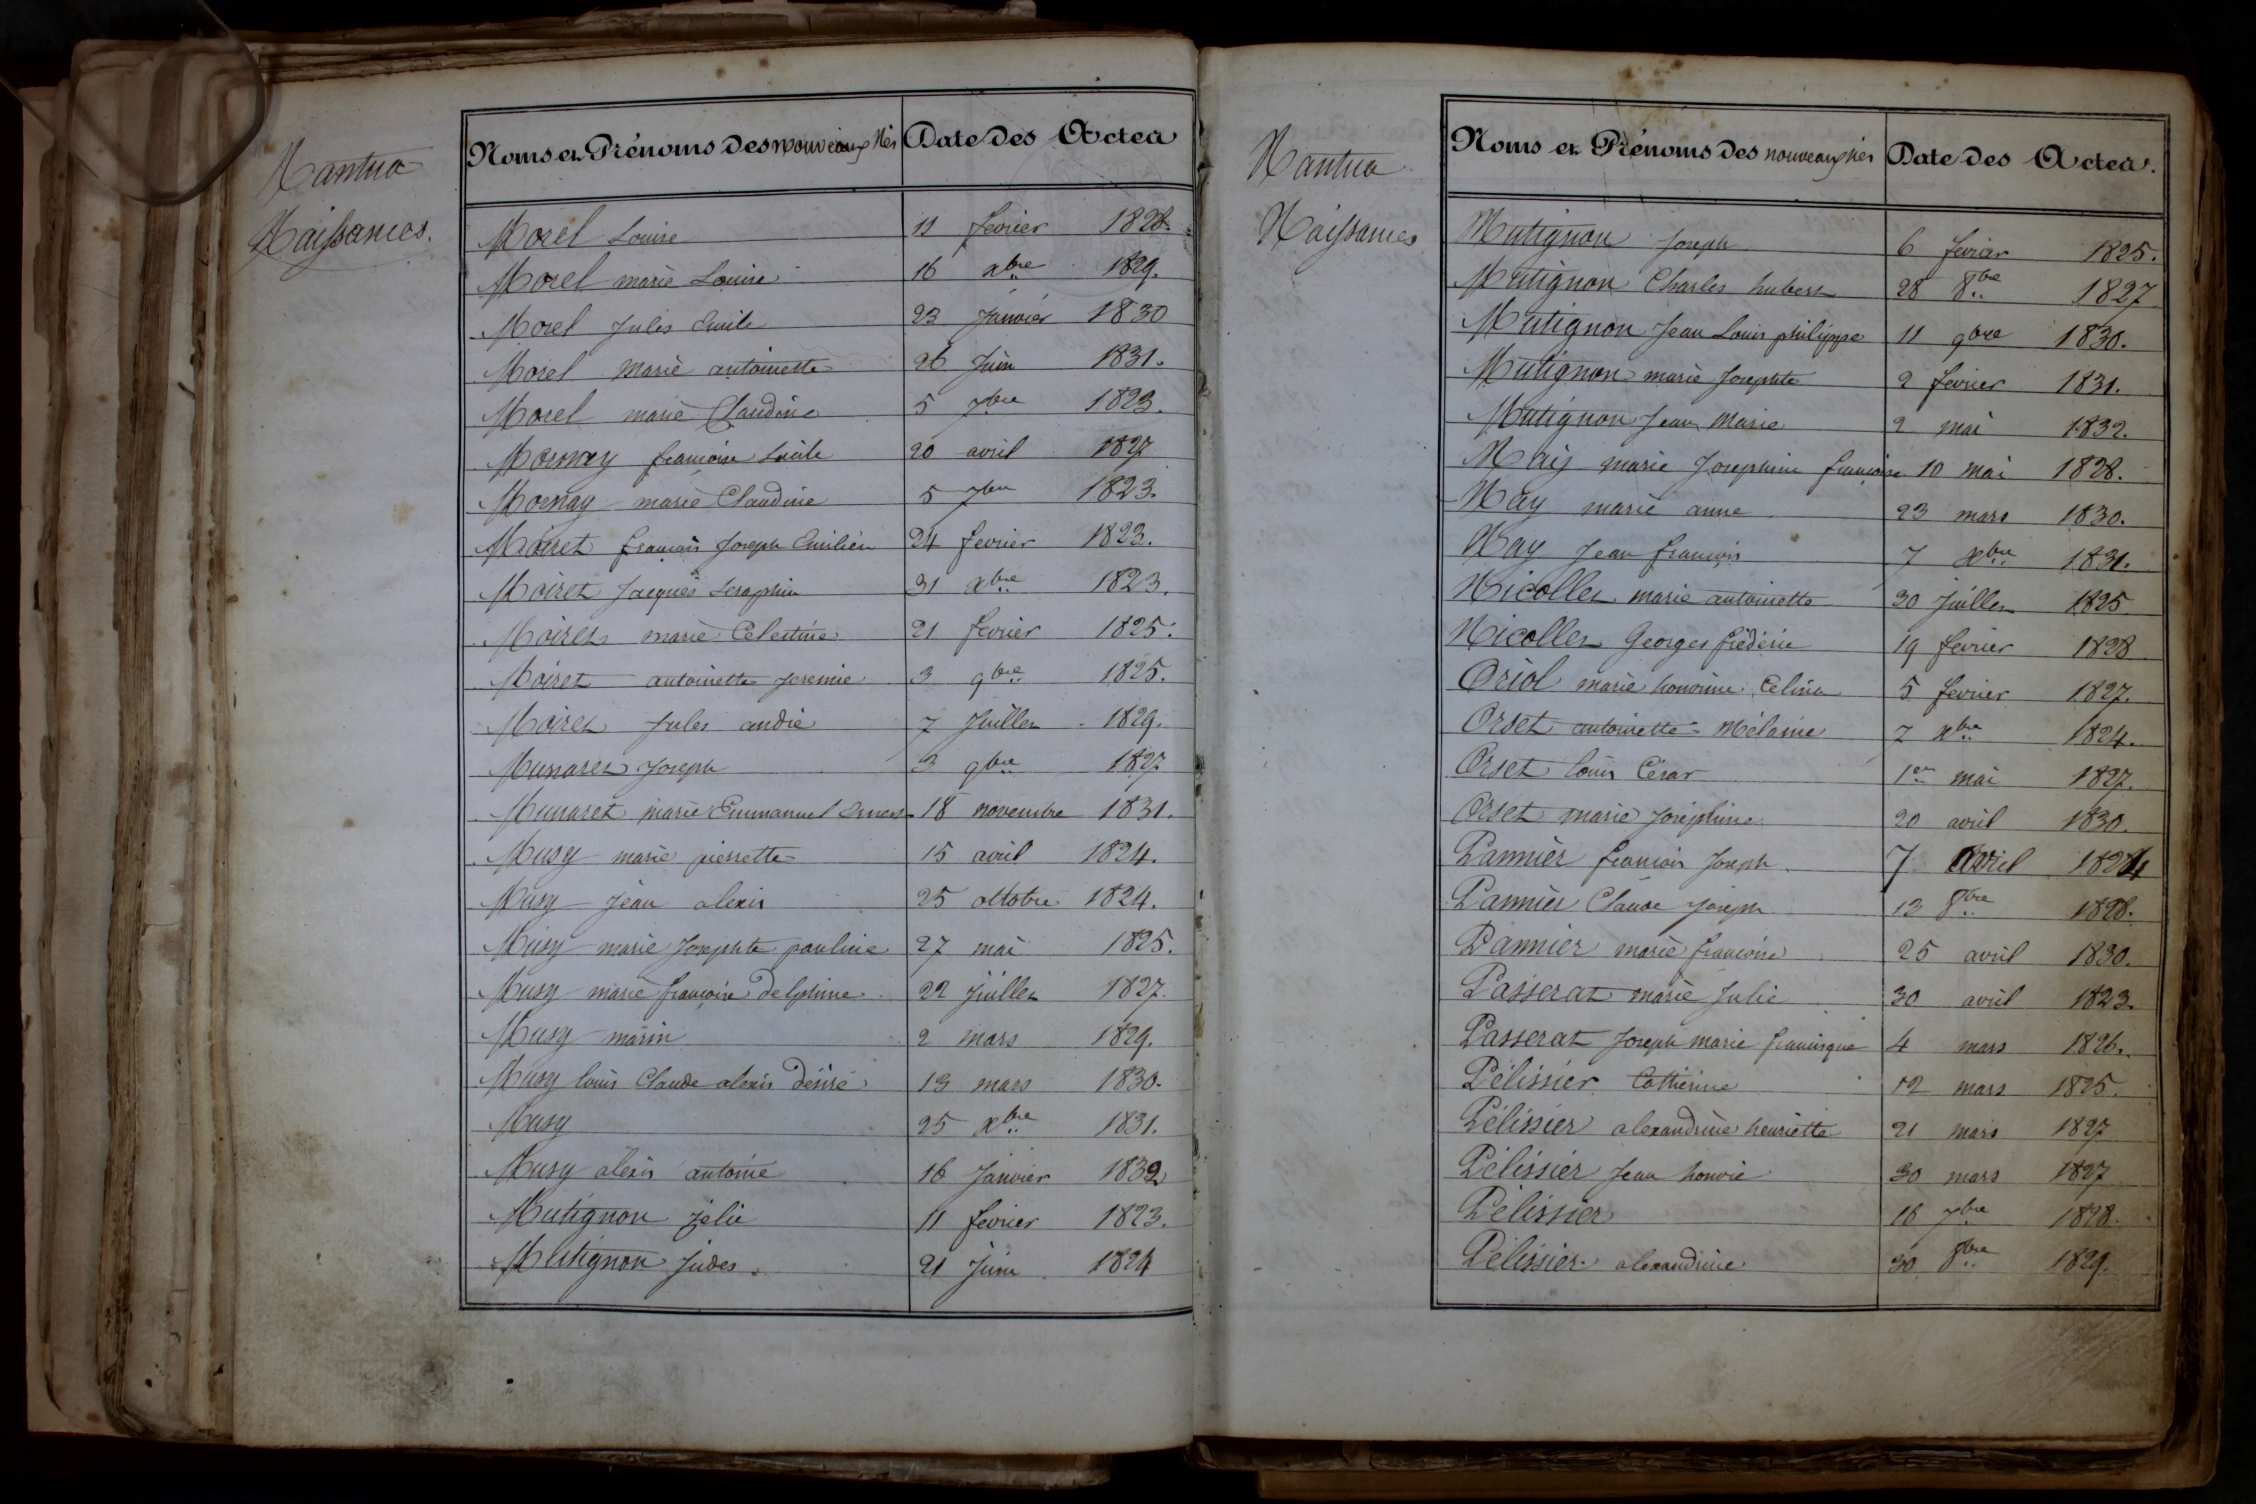 Nantua
Naissances.
Noms et Prénoms des nouveaux Nés Date des Actes
Morel Louise 11 fevrier 1828.
Morel marie Louise 16 xbre 1829.
Morel Jules Emile 23 Janvier 1830
Morel Marie antoinette 26 Juin 1831.
Morel marie Claudine 5 7bre 1823.
Mornay francoise Lucile 20 avril 1827
Mornay marie Claudine 5 7bre 1823.
Moiret francois Joseph Emilien 24 fevrier 1823.
Moiret Jacques Seraphin 31 xbre 1823.
Moiret marie Celestine 21 fevrier 1825.
Moiret antoinette Jeremie 3 9bre 1825.
Moiret Jules andré 7 Juillet 1829.
Munaret Joseph 3 9bre 1827
Munaret marie Emmanuel Ernest 18 novembre 1831.
Musy marie pierrette 15 avril 1824.
Musy Jean alexis 25 octobre 1824.
Musy marie Josephte pauline 27 mai 1825.
Musy marie francoise delphine 22 Juillet 1827.
Musy marin 2 mars 1829.
Musy louis Claude alexis Désiré 13 mars 1830.
Musy 25 xbre 1831.
Musy alexis antoine 16 Janvier 1832
Mutignon Zélie 11 fevrier 1823.
Mutignon Judes 21 Juin 1824
Nantua
Naissances
Noms et Prénoms des nouveaux nés Date des Actes.
Mutignon Joseph 6 fevrier 1825.
Mutignon Charles hubert 28 8bre 1827
Mutignon Jean Louis philippe 11 9bre 1830.
Mutignon marie Josephte 2 fevrier 1831.
Mutignon Jean Marie 2 mai 1832.
Nay marie Josephine françoise 10 mai 1828.
Nay marie anne 23 mars 1830.
Nay Jean françois 7 xbre 1831.
Nicollet marie antoinette 30 Juillet 1825
Nicollet Georges fréderic 19 fevrier 1828
Oriol marie honorine Celina 5 fevrier 1827.
Orset antoinette Mélanie 7 xbre 1824.
Orset louis César 1er mai 1827.
Orset marie Joséphine 20 avril 1830.
Pannier francois Joseph 7 Avril 1824
Pannier Claude Joseph 13 8bre 1828.
Pannier marie francoise 25 avril 1830.
Passerat marie Julie 30 avril 1823.
Passerat Joseph marie francisque 4 mars 1826.
Pélissier Cathérine 12 mars 1825.
Pélissier alexandrine henriette 21 mars 1827
Pélissier Jean honoré 30 mars 1827
Pélissier 16 7bre 1828.
Pélissier alexandrine 30 8bre 1829.